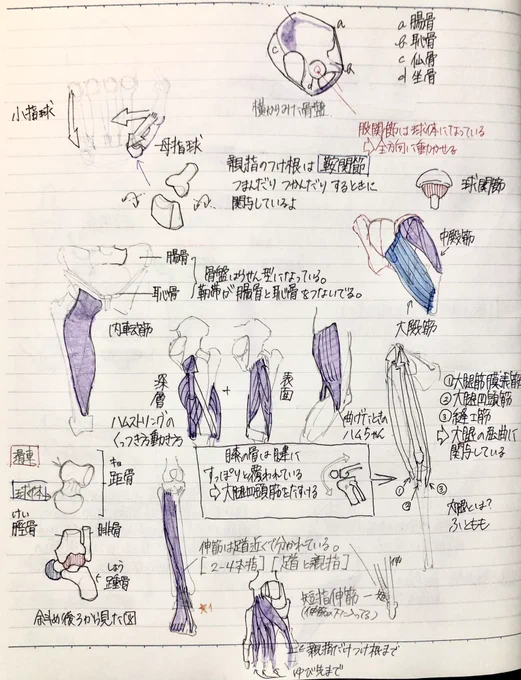 a 腸骨
b 恥骨
c 仙骨
d 坐骨
a
c
d
b
横からみた骨盤
小指球
母指球
股関節は球体になっている
⇨全方向に動かせる
親指のつけ根は 鞍関節
つまんだり つかんだり するときに
関与しているよ
球関節
中殿筋
大殿筋
腸骨
恥骨
骨盤はらせん型になっている。
靭帯が腸骨と恥骨をつないでる。
内転筋
深層
+
表面
ハムストリングの
くっつき方動き方
曲げたときの
ハムちゃん
①大腿筋膜張筋
②大腿四頭筋
③縫工筋
⇨大腿の屈曲に
関与している
大腿とは?
ふともも
①
②
③
膝の骨は腱に
すっぽりと覆われている
⇨大腿四頭筋をたすける
滑車
球体
きょ
距骨
けい
脛骨
腓骨
しょう
踵骨
斜め後ろから見た図
伸筋は足首近くで分かれている。
[2-4本指] [足首と親指]
※1
短指伸筋
親指だけつけ根まで
のび先まで